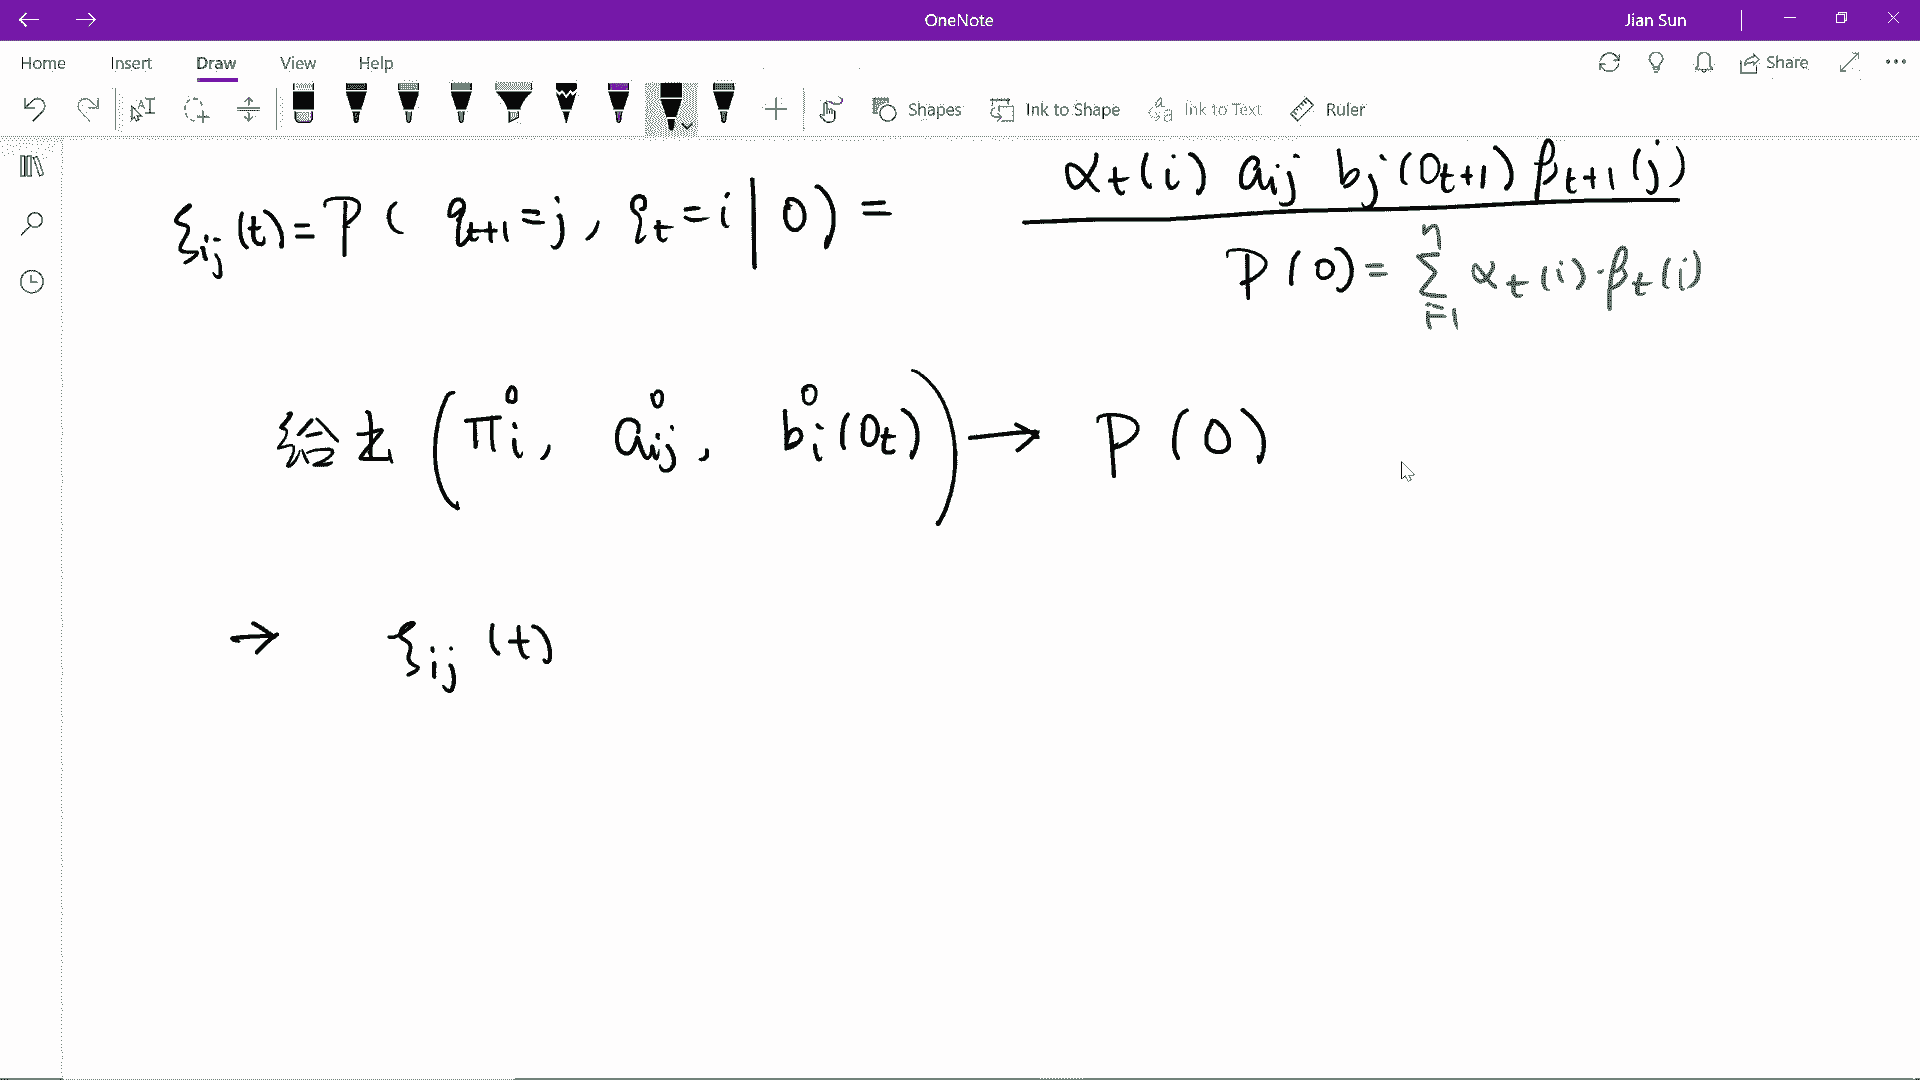 OneNote Jian Sun
Home Insert Draw View Help Share
Shapes Ink to Shape Ink to Text Ruler
αt(i) aij bj(Ot+1) βt+1(j)
ξij(t) = P( qt+1 = j, qt = i | O) =
P(O) = Σ n i=1 αt(i)·βt(i)
给出 (πi⁰, aij⁰, bi⁰(Ot)) → P(O)
→ ξij(t)